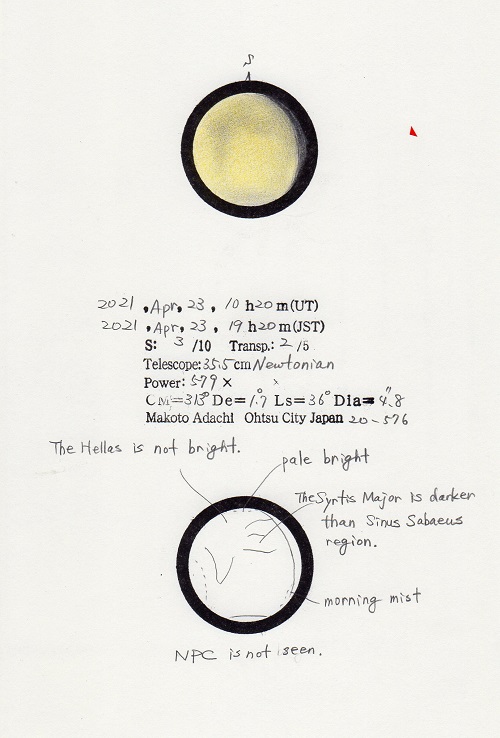 S
2021 , Apr, 23 , 10 h20 m(UT)
2021 , Apr, 23 , 19 h20 m(JST)
S: 3 /10 Transp.: 2 /5
Telescope: 35.5 cm Newtonian
Power: 579 × ×
CM=313° De= 1.7° Ls= 36° Dia= 4.8"
Makoto Adachi Ohtsu City Japan 20-576
The Hellas is not bright.
pale bright
The Syrtis Major is darker
than Sinus Sabaeus
region.
morning mist
NPC is not seen.